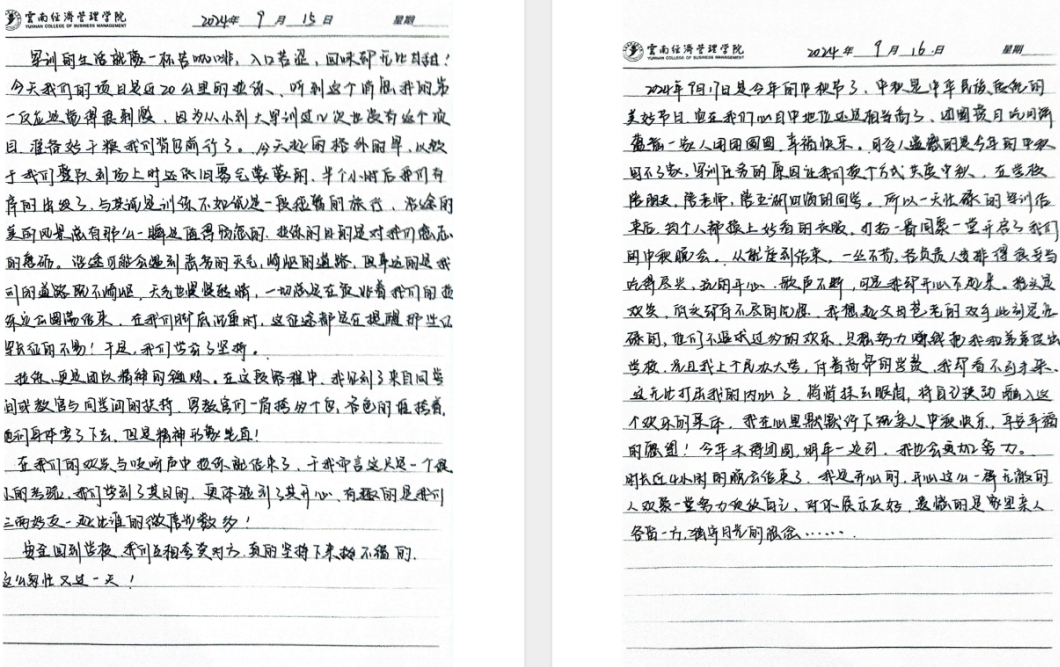 雲南经济管理学院
YUNNAN COLLEGE OF BUSINESS MANAGEMENT
2024年 9月 15日 星期
军训的生活就像一杯苦咖啡,入口苦涩,回味却无比甘甜!
今天我们的项目是近20公里的拉练、听到这个消息我的第
一反应是觉得很刺激,因为从小到大军训过几次也没有这个项
目,准备好干粮我们背包前行了。今天起的格外的早,以致
于我们整队到场上时还依旧雾气蒙蒙的,半个小时后我们有
序的出发了,与其说是训练不如说是一段短暂的旅行,沿途的
美丽风景总有那么一瞬是值得留恋的,拉练的目的是对我们意志
的磨砺。沿途可能会遇到恶劣的天气,崎岖的道路,但幸运的是我
们的道路既不崎岖,天气也慢慢转晴,一切都是在照非着我们的拉
练定会圆满结束,在我们脚底沉重时,这征途都是在提醒那些红
军长征的不易!于是,我们学会了坚持。
拉练,更是团队精神的锻炼。在这段路程中,我见到了来自同学
间或教官与同学间的扶持,男教官们一肩挎几个包,各色的挂挎着,
他们身体弯了下去,但是精神形象笔直!
在我们的欢笑与吱呀声中拉练就结束了,于我而言这只是一个很
小的考验,我们学到了其目的,更体验到了其开心,有趣的是我们
三两好友一起比谁的微信步数多!
安全回到学校,我们互相夸奖对方,真的坚持下来挺不错的.
这么努忙又过一天!
雲南经济管理学院
YUNNAN COLLEGE OF BUSINESS MANAGEMENT
2024年 9月 16日 星期
2024年9月17日是今年的中秋节了,中秋是中华民族传统的
美好节日,也在我们心目中地位还是相当高了,团圆赏月吃月饼
看着一家人团团圆圆,幸福快乐。可令人遗憾的是今年的中秋
因不放假,军训任务的原因让我们换个方式共度中秋,在学校
陪朋友,陪老师,陪五湖四海的同学。所以一天忙碌的军训后
来后,每个人都换上好看的衣服,打扮一番同聚一堂开启了我们
的中秋晚会。从就座到结束,一丝不苟,各负责人安排得很妥当
吃得尽兴,玩的开心,歌声不断,可是我却开心不起来。抬头是
欢笑,低头却有不尽的沉思,我想起父母苍老的双手此刻是忙
碌的,他们不追求过多的欢乐,只想努力赚钱把我和弟弟供出
学校,况且我上个民办大学,付着高昂的学费,我却看不到未来、
这无比打击我的内心了,悄悄抹去眼角,将自己快动融入这
个欢乐的集体,我在心里默默许下祝亲人中秋快乐,平安幸福
的愿望!今年未得团圆,明年一定到,我也会更加努力。
时长近4小时的晚会结束了,我是开心的,开心这么一群有激的
人欢聚一堂努力做放自己,对你展示友好,遗憾的是家里亲人
各留一方,独守月光的思念……